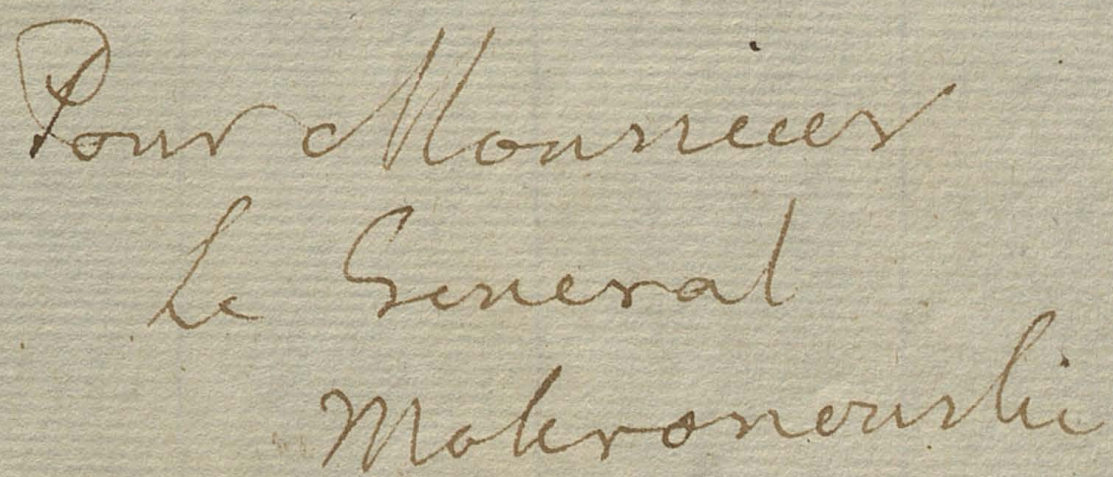 Pour Monsieur
le General
Mokronowski